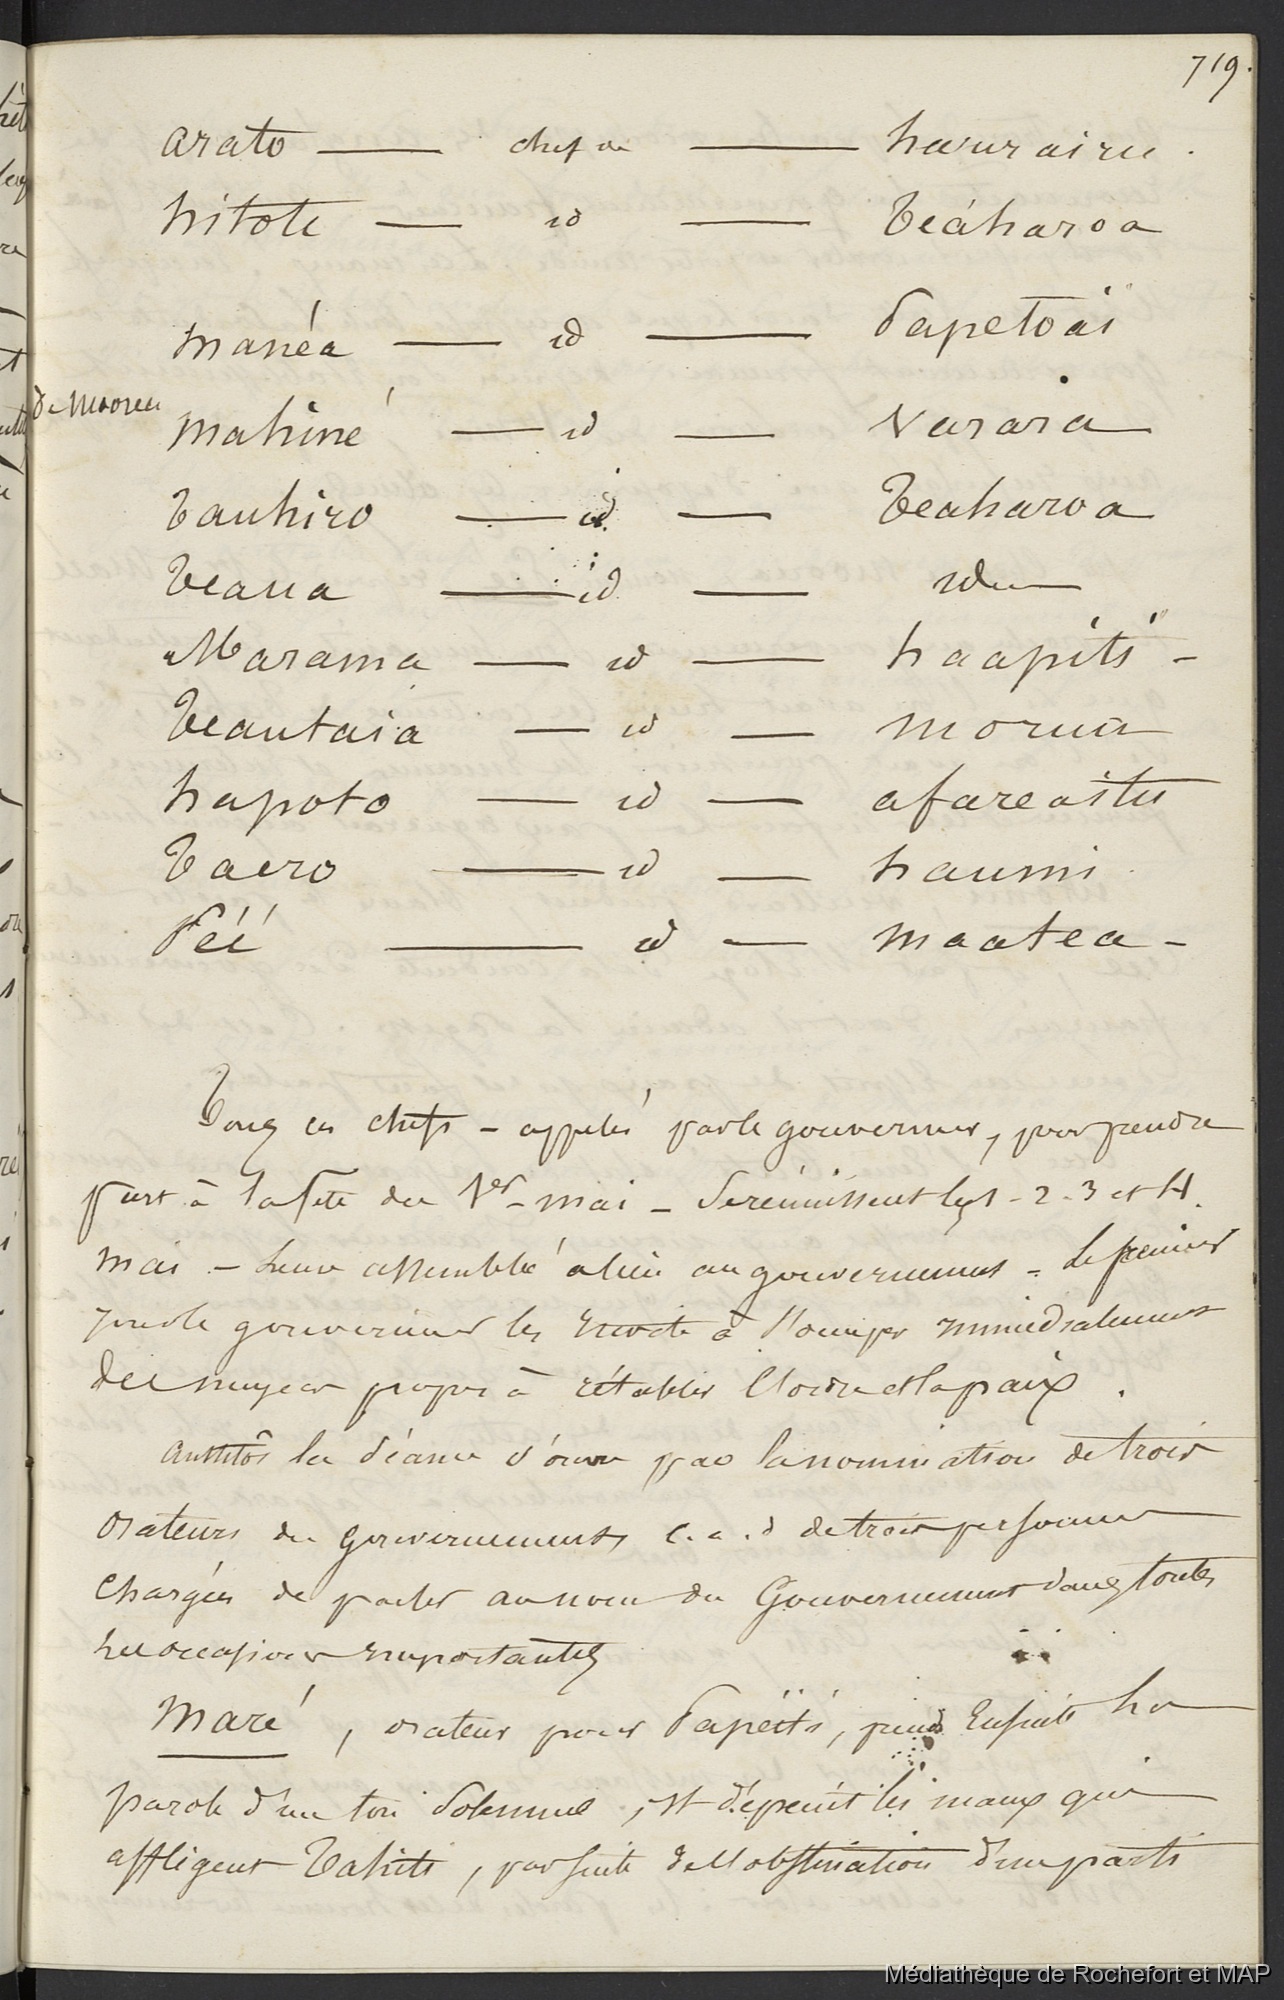 719.
arato — chef de — haurairu.
hitote — id — Teaharoa
manéa — id — Papetoaï
de Mooréa
mahiné — id — Varaia
Tauhiro — id — Teaharoa
Teaua — id — idem
Marama — id — haapiti -
Teautaia — id — moruu
hapoto — id — afareaitu
Taero — id — haumi
Péé — id — maatea -
Tous ces chefs - appelés par le gouverneur, pour prendre
part à la fête du 1er - mai - se réunissent les 1 - 2 - 3 et 4.
mai - Leur assemblée a lieu au gouvernement - Le premier
jour le gouverneur les invite à s'occuper immédiatement
des moyens propres à rétablir l'ordre et la paix.
aussitôt la séance s'ouvre par la nomination de trois
orateurs du gouvernement, c.a.d de trois personnes
chargées de parler au nom du Gouvernement dans toutes
les occasions importantes
Maré, orateur pour Papéïti, prend ensuite la
parole d'un ton solennel, et dépeint les maux qui
affligent Tahiti, par suite de l'obstination d'un parti
Médiathèque de Rochefort et MAP